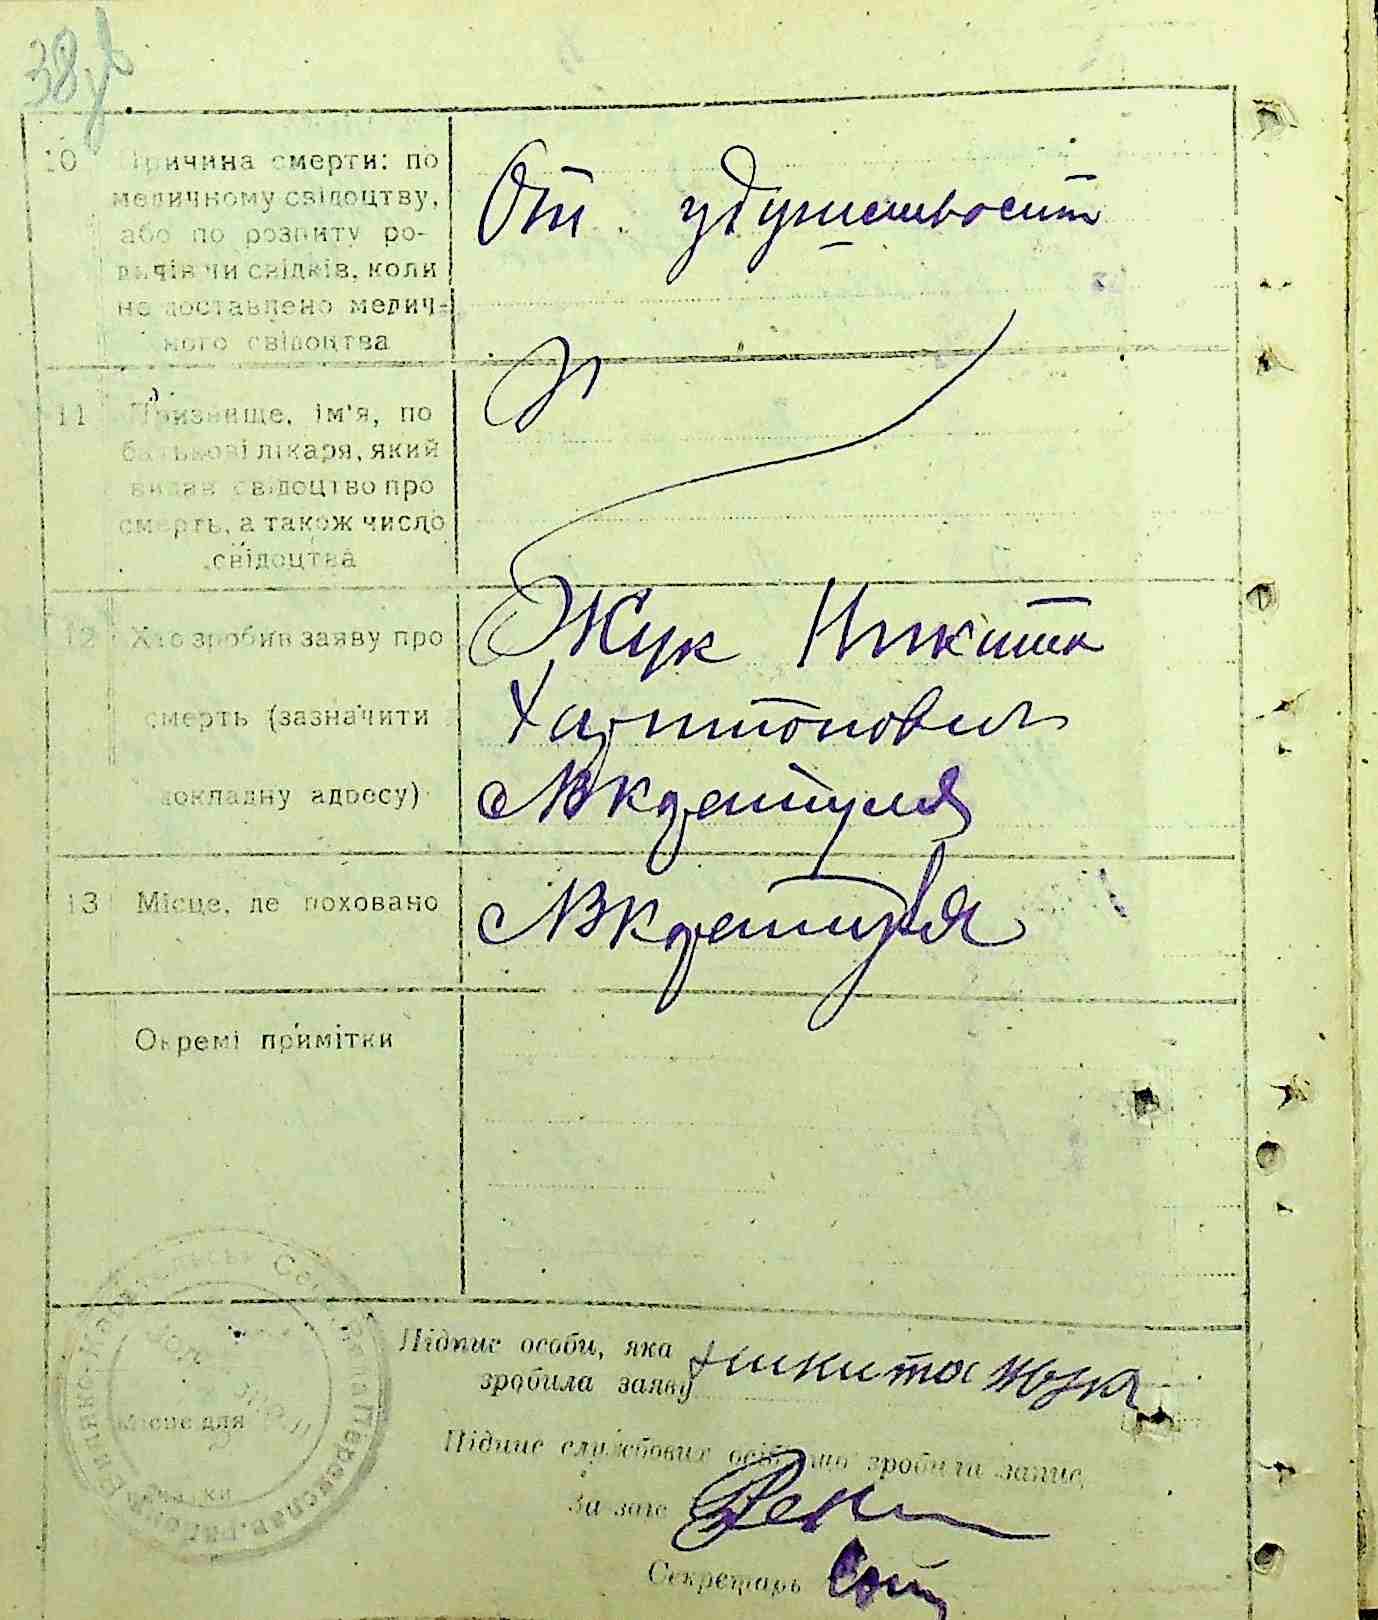 38
10 Причина смерти: по
медичному свідоцтву,
або по розпиту ро-
дичів чи свідків, коли
не доставлено медич-
ного свідоцтва
От удушливости
11 Призвище, ім'я, по
батькові лікаря, який
видав свідоцтво про
смерть, а також число
свідоцтва
12 Хто зробив заяву про
смерть (зазначити
докладну адресу)
Жук Никита
Харитонович
13 Місце, де поховано
Окремі примітки
Підпис особи, яка
зробила заяву Никита Жук
Підпис службових осіб, що зробили запис,
За загс
Секретарь
Місце для
печатки